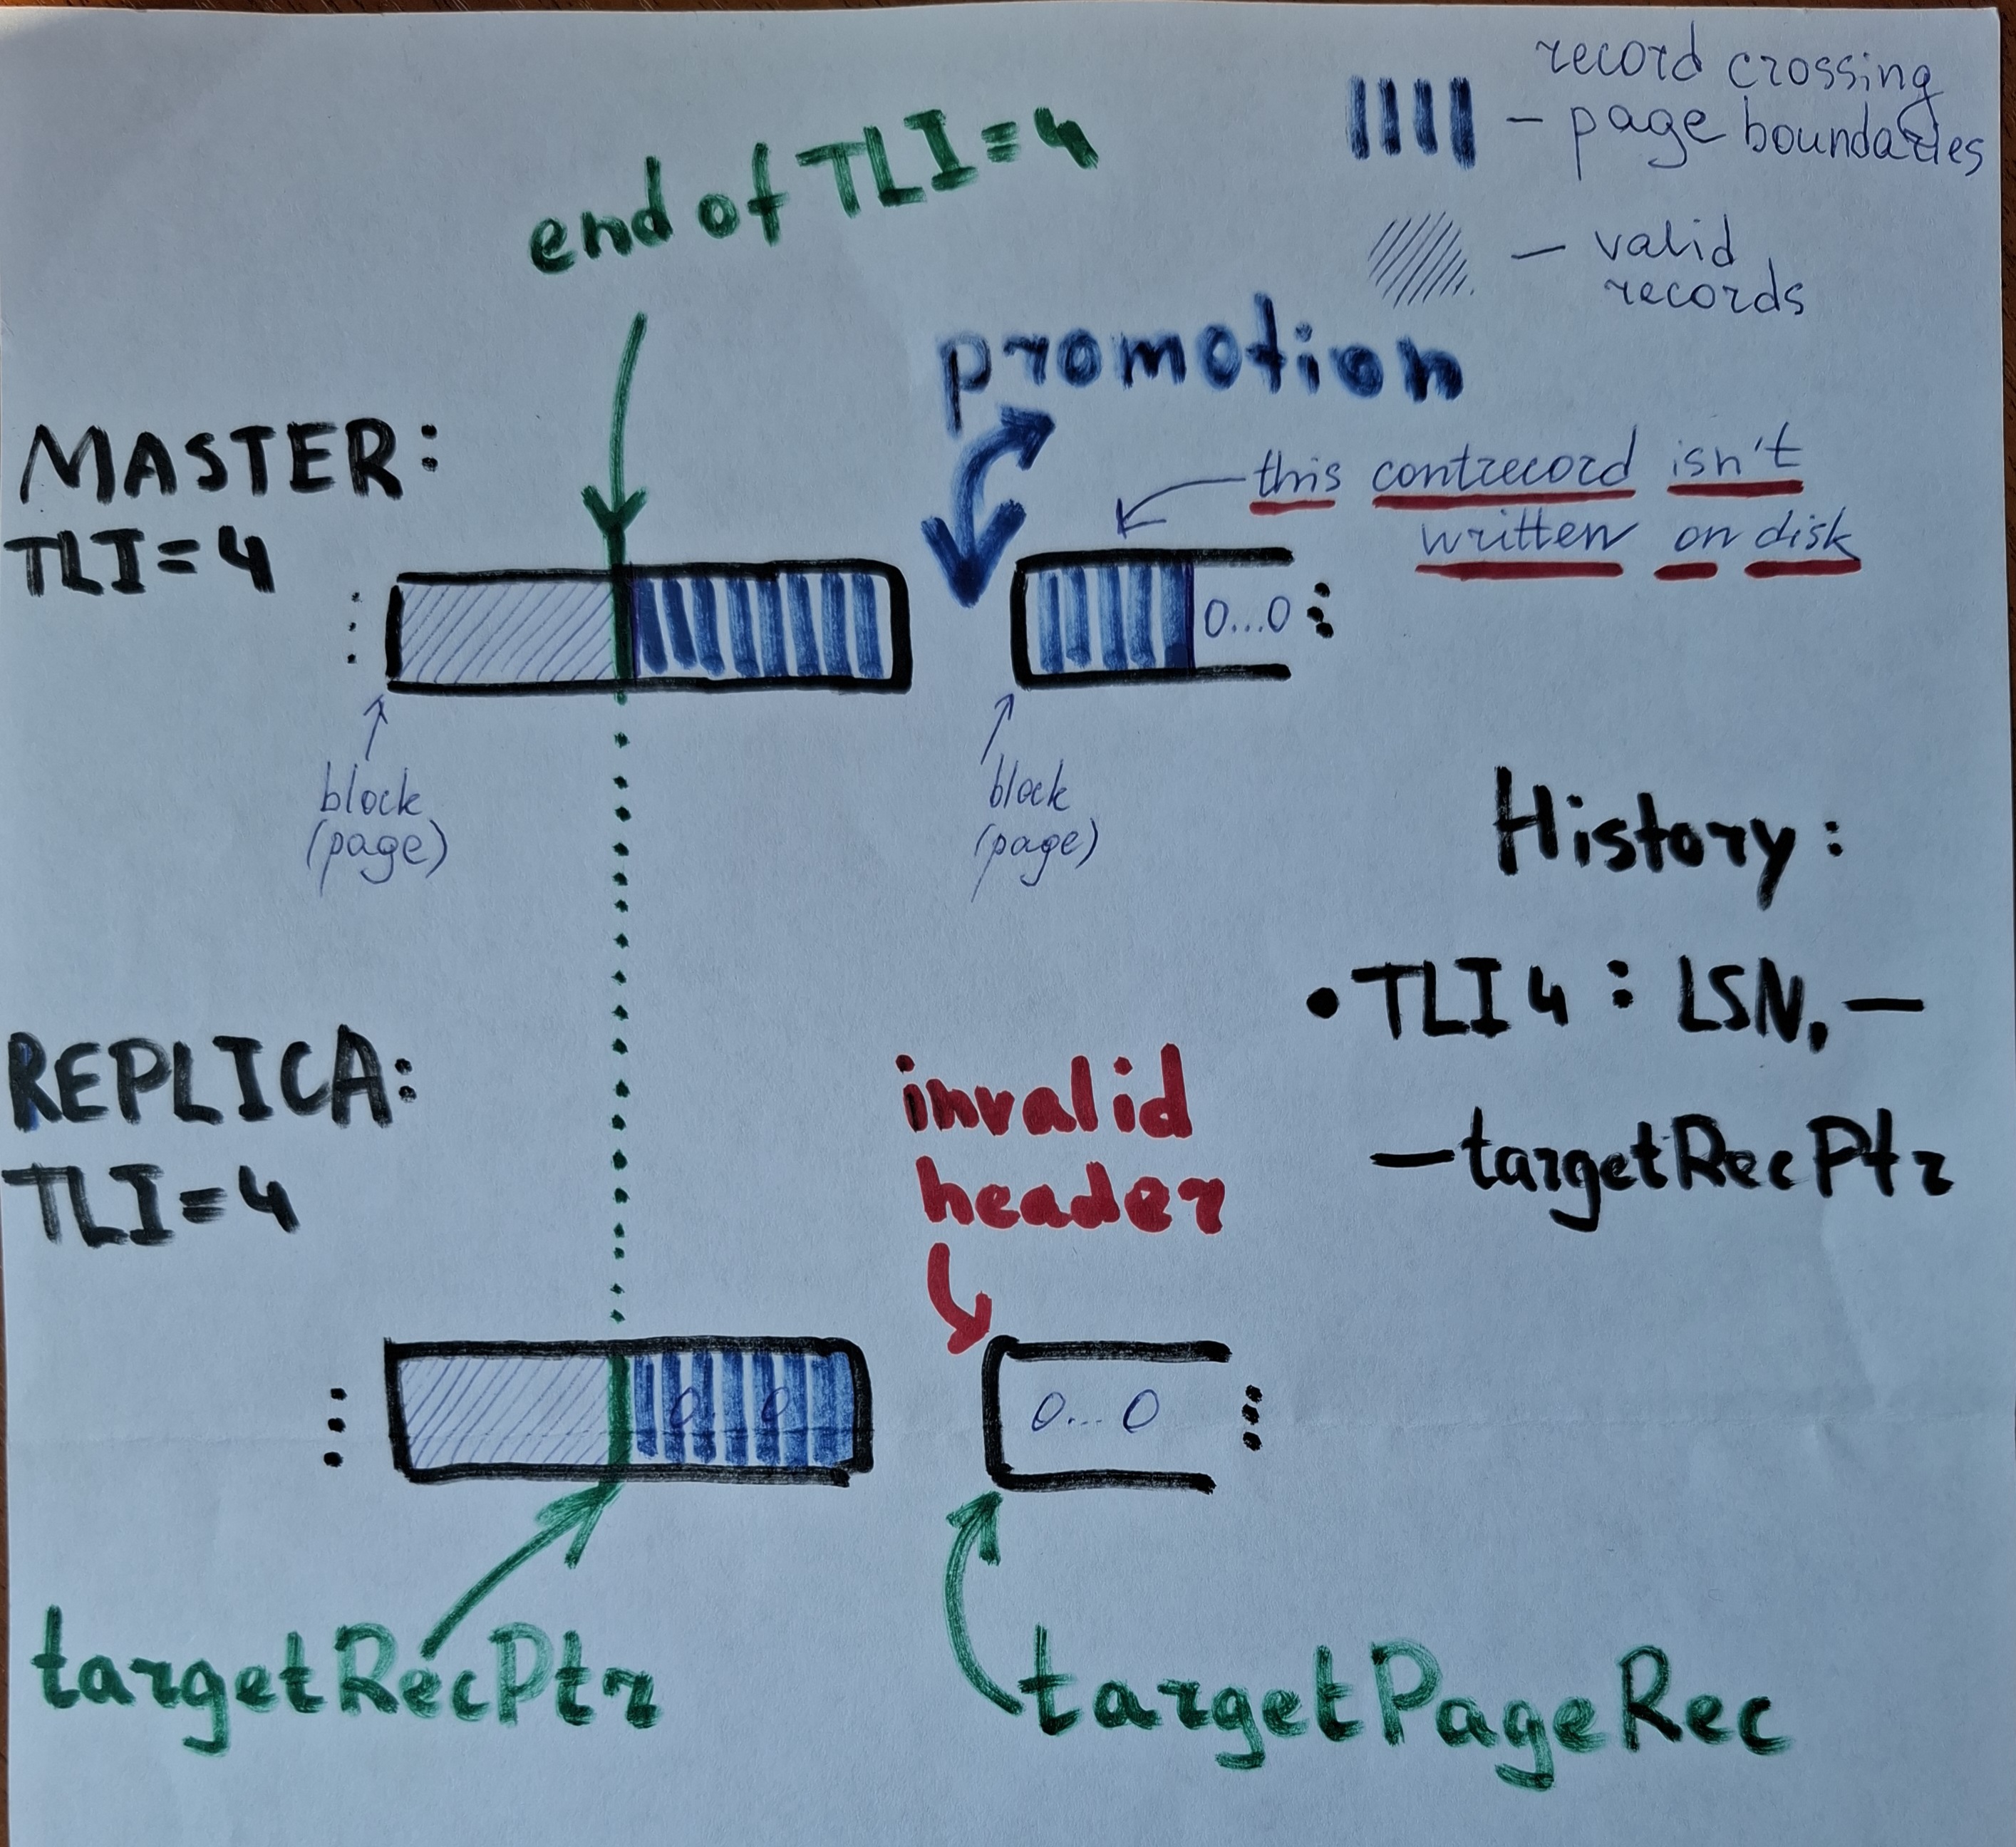 record crossing
– page boundaries
– valid
records
end of TLI=4
promotion
this contrecord isn't
written on disk
MASTER:
TLI=4
0...0
block
(page)
block
(page)
History:
• TLI 4 : LSN, –
– targetRecPtr
REPLICA:
TLI=4
invalid
header
0...0
0...0
targetRecPtr
targetPageRec